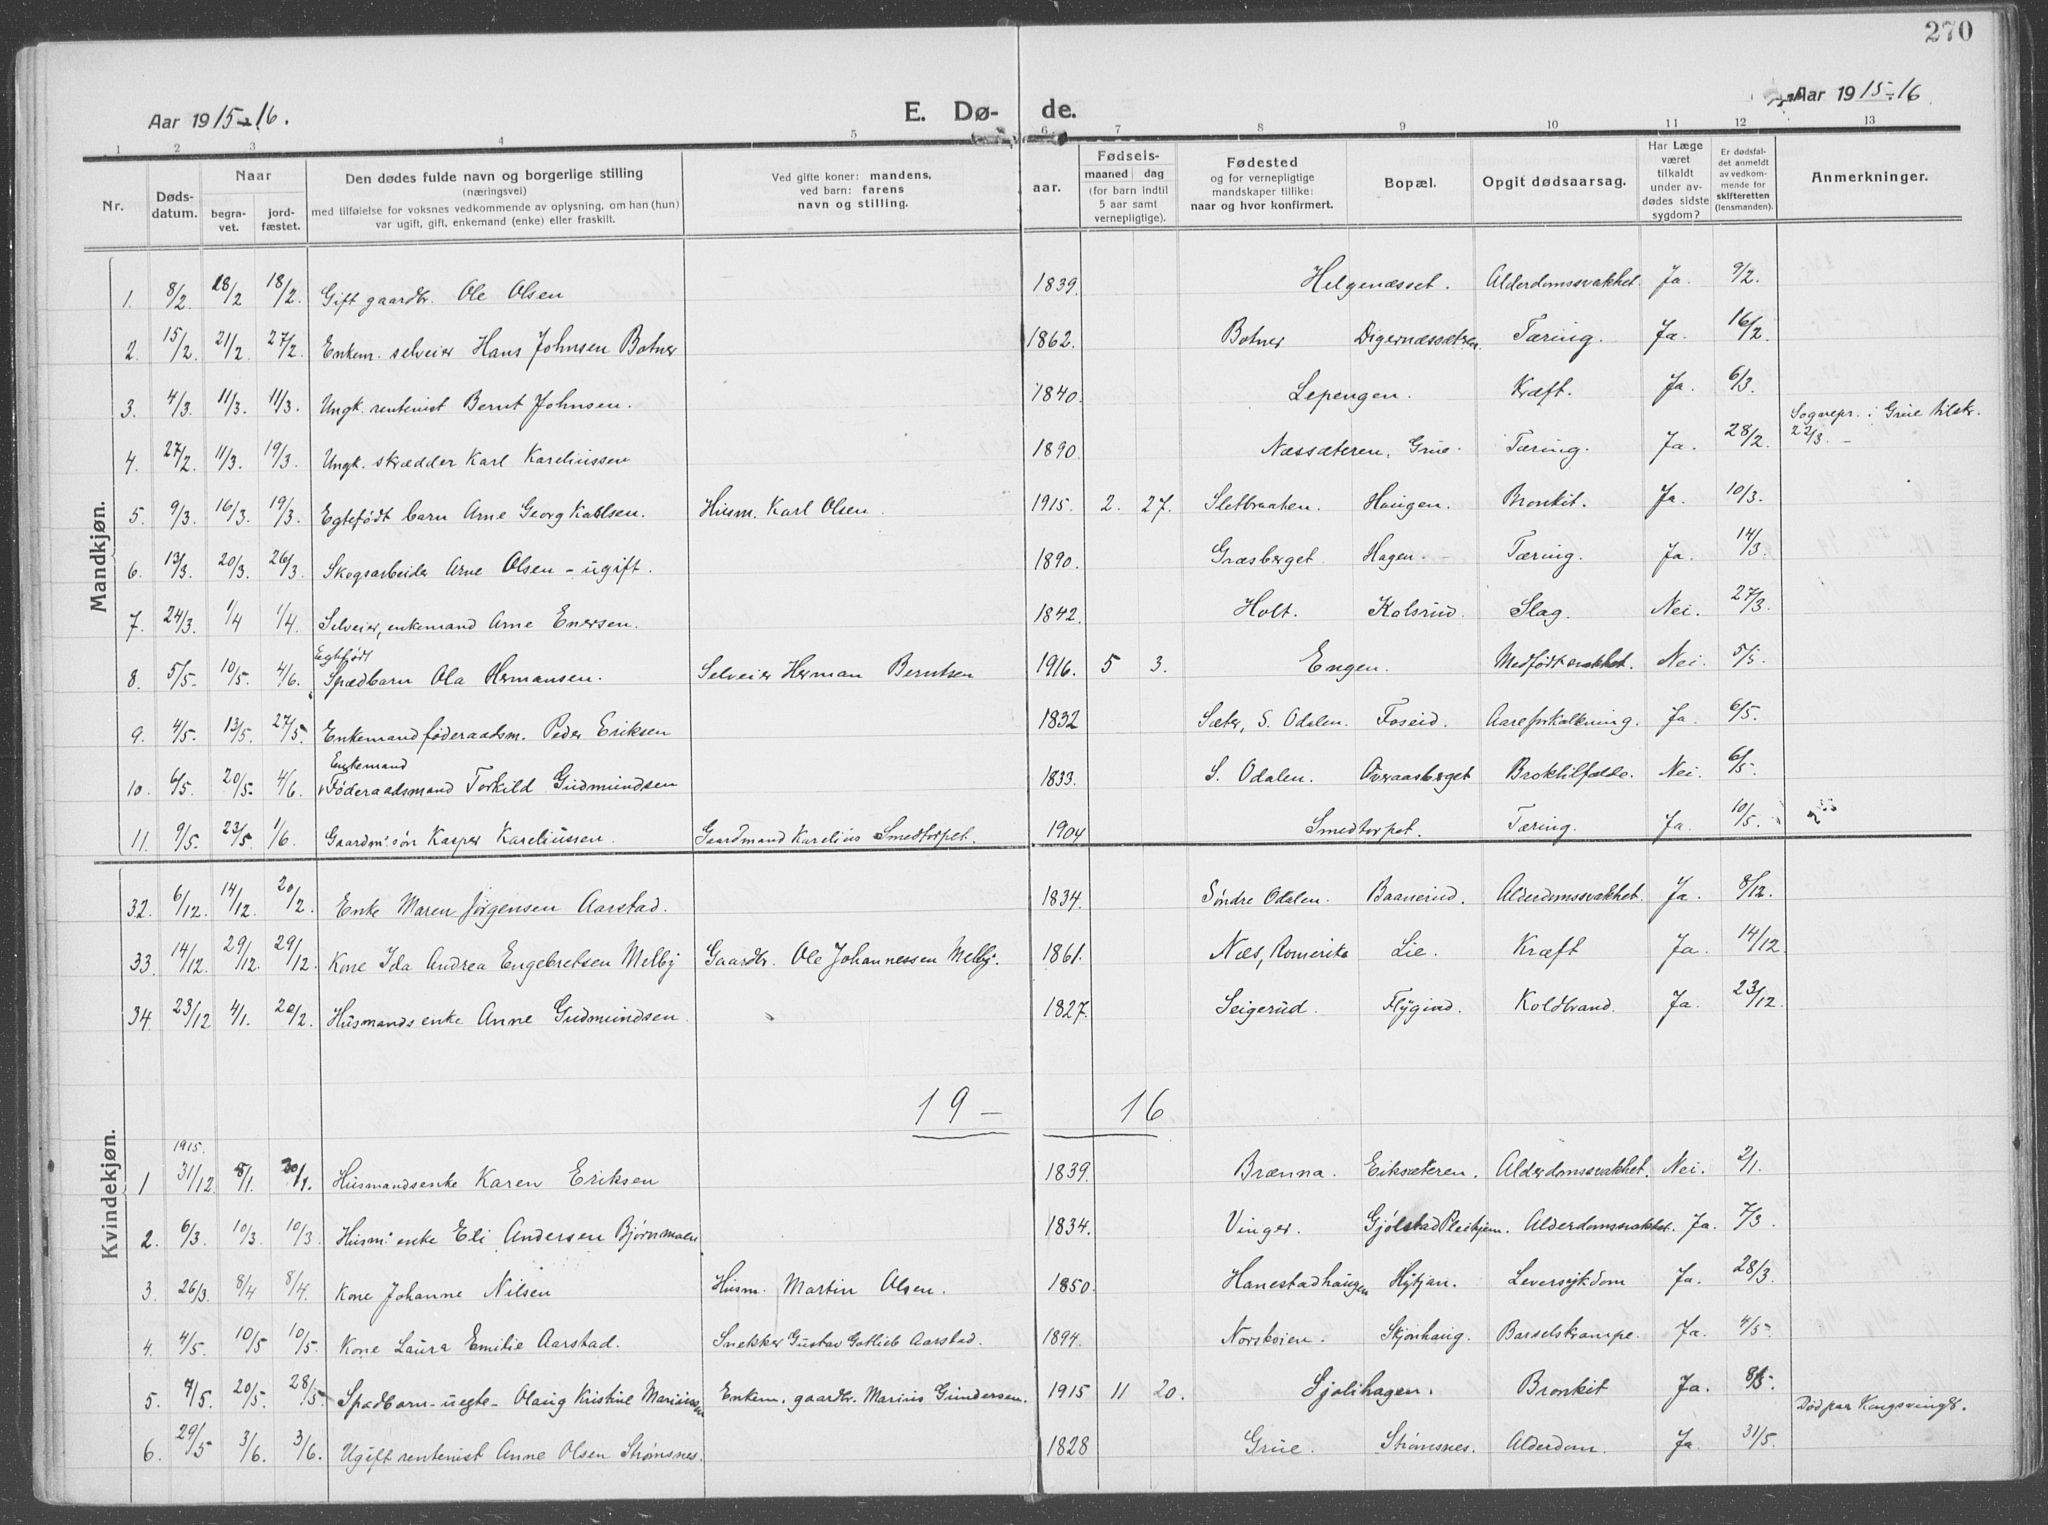 270
Aar 1915-16.
E. Dø- de.
Aar 1915-16
1 2 3 4 5 6 7 8 9 10 11 12 13
Nr.
Døds-datum.
Naar
begra-vet.
jord-fæstet.
Den dødes fulde navn og borgerlige stilling
(næringsvei)
med tilføielse for voksnes vedkommende av oplysning, om han (hun)
var ugift, gift, enkemand (enke) eller fraskilt.
Ved gifte koner: mandens,
ved barn: farens
navn og stilling.
aar.
Fødsels-
maaned dag
(for barn indtil
5 aar samt
vernepligtige).
Fødested
og for vernepligtige
mandskaper tillike:
naar og hvor konfirmert.
Bopæl.
Opgit dødsaarsag.
Har Læge
været
tilkaldt
under av-
dødes sidste
sygdom?
Er dødsfal-
det anmeldt
av vedkom-
mende for
skifteretten
(lensmanden).
Anmerkninger.
Mandkjøn.
1. 8/2 18/2 18/2. Gift gaardbr. Ole Olsen 1839. Helgenæsset. Alderdomssvakhet. Ja. 9/2.
2. 15/2. 21/2. 27/2. Enkem. selveier Hans Johnsen Botner 1862. Botner Digernæssætren. Tæring. Ja. 16/2.
3. 4/3. 11/3. 11/3. Ungk. rentenist Bernt Johnsen. 1840. Lepengen. Kræft. Ja. 6/3.
4. 27/2. 11/3. 19/3. Ungk. skrædder Karl Kareliussen 1890. Næssæteren, Grue. Tæring. Ja. 28/2. Sognepr. i Grue tilskr. 22/3. –
5. 9/3. 16/3. 19/3. Egtefødt barn Arne Georg Karlsen. Husm. Karl Olsen. 1915. 2. 27. Sletbraaten. Haugen. Bronkit. Ja. 10/3.
6. 13/3. 20/3. 26/3. Skogsarbeider Arne Olsen – ugift. 1890. Græsberget. Hagen. – Tæring. Ja. 14/3.
7. 24/3. 1/4 1/4. Selveier, enkemand Arne Enersen. 1842. Holt. Kolsrud. Slag. Nei. 27/3.
8. 5/5. 10/5. 4/6. Egtefødt Spædbarn Ola Hermansen. Selveier Herman Berntsen 1916. 5 3. Engen. Medfødt svakhet. Nei. 5/5.
9. 4/5. 13/5. 27/5. Enkemand føderaadsm. Peder Eriksen 1832 Sæter, S. Odalen. Foseid. Aareforkalkning. Ja. 6/5.
10. 6/5. 20/5. 4/6. Enkemand Føderaadsmand Torkild Gudmundsen 1833. S. Odalen. Overaasberget Broktilfælde. Nei. 6/5.
11. 9/5. 23/5. 1/6. Gaardm. søn Kasper Kareliussen. Gaardmand Karelius Smedtorpet. 1904 Smedtorpet. Tæring. Ja. 10/5.
Kvindekjøn.
32. 6/12. 14/12. 20/2. Enke Maren Jørgensen Aarstad. 1834. Søndre Odalen. Baanerud. Alderdomssvakhet. Ja. 8/12.
33. 14/12. 29/12. 29/12. Kone Ida Andrea Engebretsen Melby Gaardbr. Ole Johannessen Melby. 1861. Næs, Romerike Lie. Kræft Ja. 14/12.
34. 23/12 4/1. 20/2. Husmandsenke Anne Gudmundsen. 1827. Seigerud. Flygind. Koldbrand. Ja. 23/12.
19 – 16
1 1915. 31/12. 8/1. 20/1. Husmandsenke Karen Eriksen 1839. Brænna. Eiksæteren. Alderdomssvakhet. Nei. 2/1.
2. 6/3. 10/3. 10/3. Husm. enke Eli Andersen Bjørnmoen 1834. Vinger. Gjølstad Pleiehjem. Alderdomssvakhet. Ja. 7/3.
3. 26/3. 8/4 8/4. Kone Johanne Nilsen Husm. Martin Olsen. 1850. Hanestadhaugen Hytjan. Leversykdom Ja. 28/3.
4. 4/5. 10/5 10/5. Kone Laura Emilie Aarstad. Snekker Gustav Gotlieb Aarstad. 1894. Norskoien. Skjønhaug. Barselskrampe. Ja. 4/5.
5. 7/5. 20/5. 28/5. Spædbarn – uegte – Olaug Kristine Mariussen Enkem. gaardbr. Marius Gundersen. 1915 11 20. Sjølihagen. Bronkit Ja. 8/5.
6. 29/5 3/6. 3/6. Ugift rentenist Anne Olsen Strømsnes. 1828 Grue. Strømsnes. Alderdom. Ja. 31/5. Død paa Kongsving s.